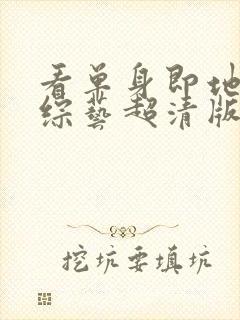 看单身即地
综艺超清版
挖坑要填坑